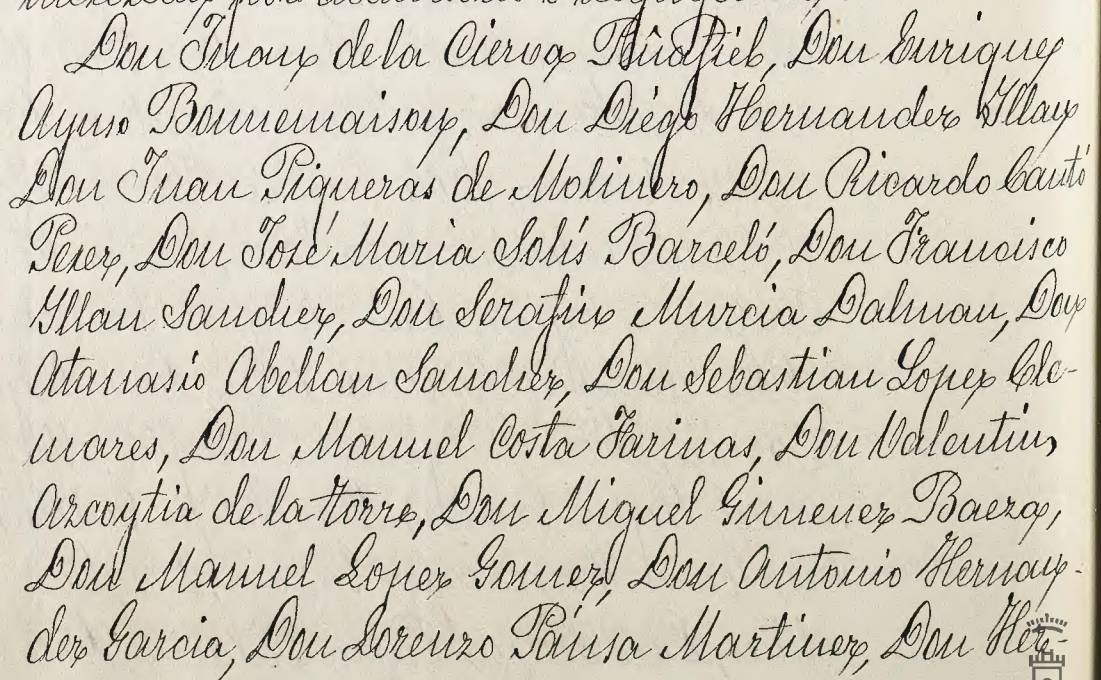 Don Juan de la Cierva Peñafiel, Don Enrique
Ayuso Bonnemaison, Don Diego Hernandez Illan
Don Juan Piqueras de Molinero, Don Ricardo Cantó
Perez, Don José Maria Solís Barceló, Don Francisco
Illan Sanchez, Don Serafin Murcia Dalmau, Don
Atanasio Abellan Sanchez, Don Sebastian Lopez Cle-
mares, Don Manuel Costa Farinas, Don Valentin
Azcoytia de la torre, Don Miguel Gimenez Baeza,
Don Manuel Lopez Gomez, Don Antonio Hernan-
dez Garcia, Don Lorenzo Pausa Martinez, Don Her-